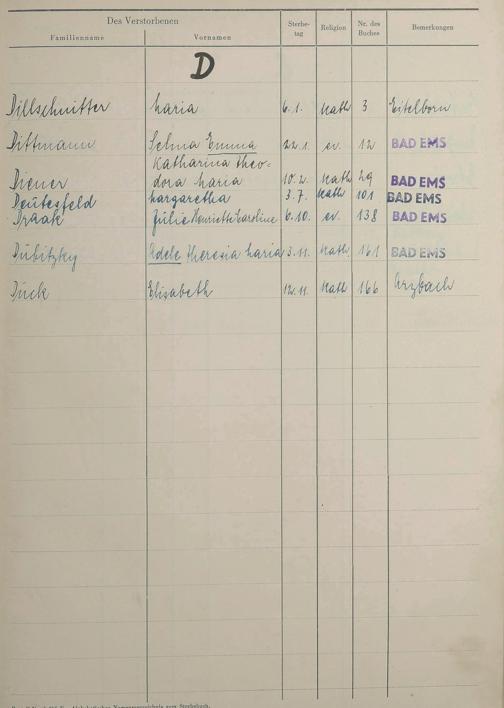 Des Verstorbenen Sterbe- Religion Nr. des Bemerkungen
Familienname Vornamen tag Buches
D
Dillschnitter Maria 6.1. kath 3 Eitelborn
Dittmann Selma Emma 22.1. ev. 12 BAD EMS
Katharina Theo-
Diener dora Maria 10.2. kath 29 BAD EMS
Deutesfeld Margaretha 3.7. kath 101 BAD EMS
Draak Julie Henriette Caroline 6.10. ev. 138 BAD EMS
Dubitzky Adele Theresia Maria 3.11. kath. 161 BAD EMS
Duck Elisabeth 12.11. kath 166 Arzbach